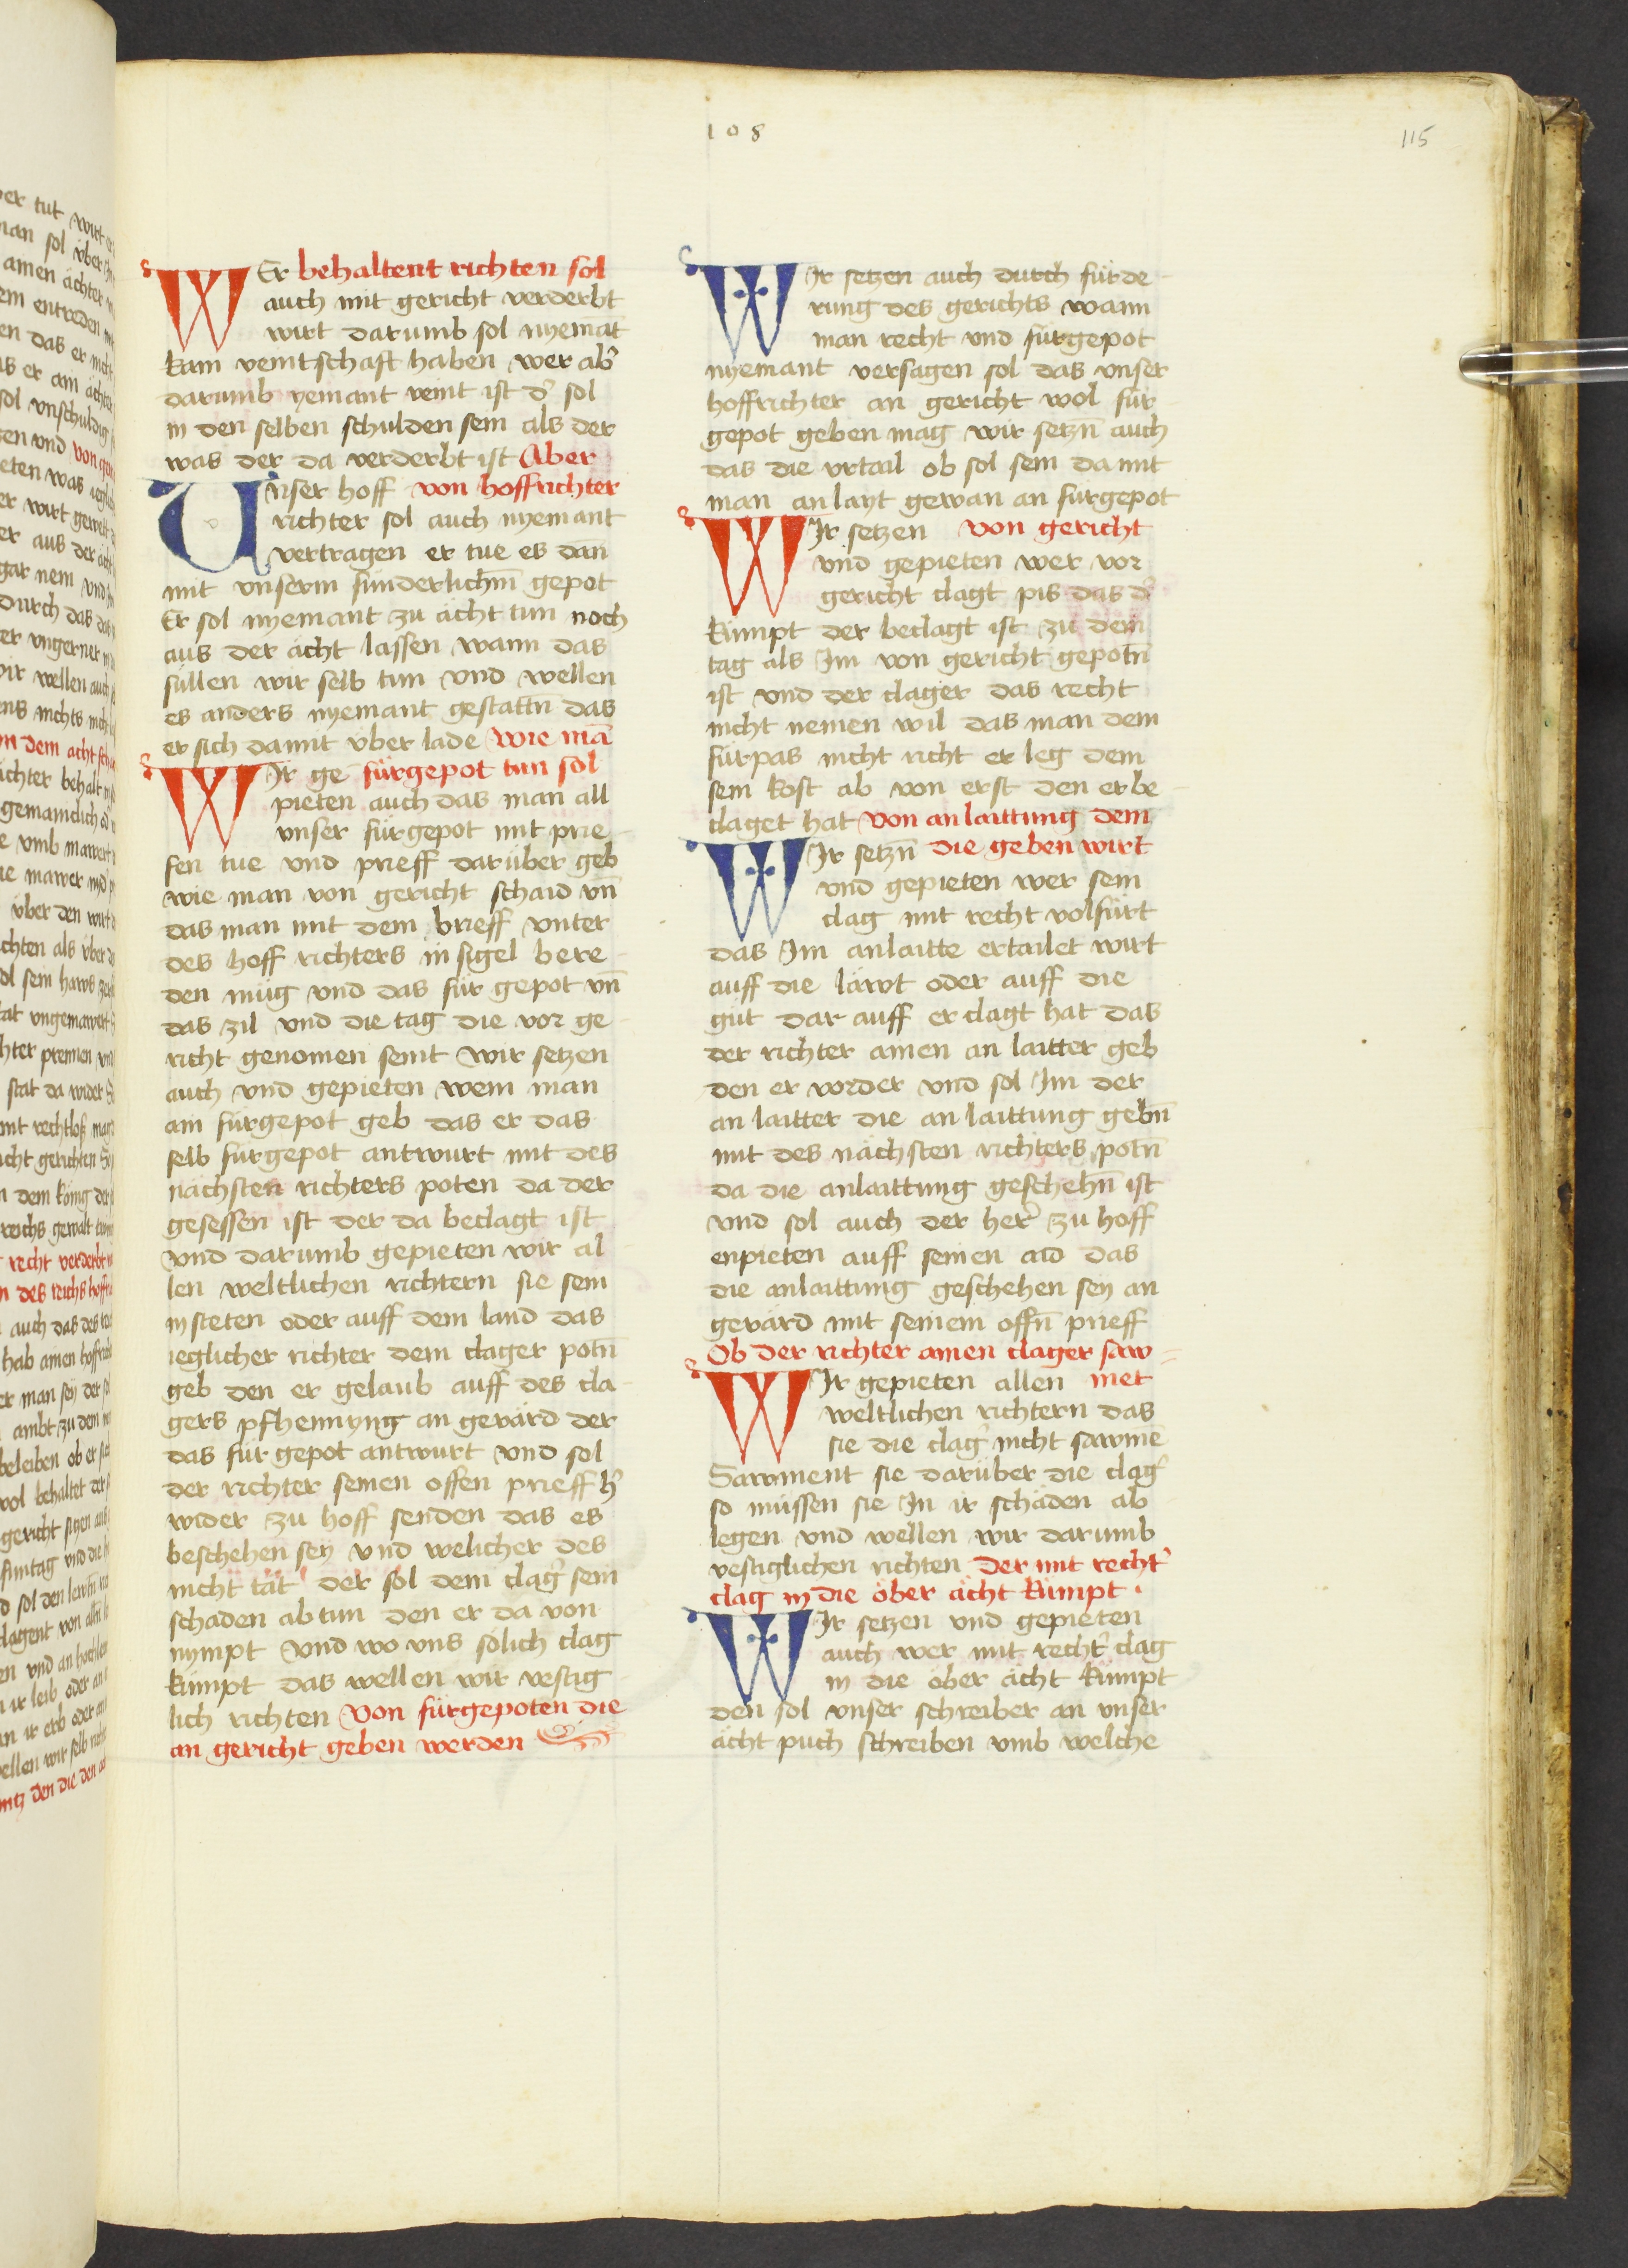 108
115
WEr behaltent richten sol
auch mit gericht verderbt
wirt darumb sol nyemāt
kain veintschaft haben wer ab͛
darumb yemant veint ist d͛ sol
in den selben schulden sein als der
was der da verderbt ist Aber
Unser hoff von hoffrichter
richter sol auch nyemant
vertragen er tue es dan̄
mit unserm sunderlichm̄ gepot
Er sol nyemant zu ächt tun noch
aus der ächt lassen wann das
süllen wir selb tun vnd wellen
es anders nyemant gestattn̄ das
er sich damit vber lade Wie mā
WIr ge fürgepot tun sol
pieten auch das man all
unser fürgepot mit prie
fen tue vnd prieff darüber geb
wie man von gericht schaid vn̄
das man mit dem brieff vnter
des hoff richters in sigel bere
den müg vnd das für gepot vn̄
das zil vnd die tag die vor ge
richt genomen seint Wir setzen
auch vnd gepieten wem man
ain fürgepot geb das er das
selb fürgepot antwurt mit des
nächsten richters poten da der
gesessen ist der da beclagt ist
Vnd darumb gepieten wir al
len weltlichen richtern sie sein
in steten oder auff dem land das
ieglicher richter dem clager potn̄
geb den er gelaub auff des cla
gers pfhennyng an gevärd der
das für gepot antwurt vnd sol
der richter seinen offen prieff h͛
wider zu hoff senden das es
beschehen sey vnd welicher des
nicht tät der sol dem clag͛ sein
schaden ab tun den er da von
nympt Vnd wo vns sölich clag
kümpt das wellen wir vestig
lich richten Von fürgepoten die
an gericht geben werden
WIr setzen auch durch fürde
rung des gerichts wann
man recht vnd fürgepot
nyemant versagen sol das vnser
hoffrichter an gericht wol für
gepot geben mag wir setzn̄ auch
das die vrtail ob sol sein da mit
man anlayt gewan an fürgepot
WIr setzen von gericht
vnd gepieten wer vor
gericht clagt pis das d͛
kümpt der beclagt ist zu dem
tag als Im von gericht gepotn̄
ist vnd der clager das recht
nicht nemen wil das man dem
fürpas nicht richt er leg dem
sein kost ab von erst den er be
claget hat Von anlaittung dem
WIr setzn̄ die geben wirt
vnd gepieten wer sein
clag mit recht volfürt
das Im anlaitte ertailet wirt
auff die läwt oder auff die
güt dar auff er clagt hat das
der richter ainen an laitter geb
den er vorder vnd sol Im der
an laitter die an laittung gebn̄
mit des nächsten richters potn̄
da die anlaittung geschehn̄ ist
vnd sol auch der her͛ zu hoff
enpieten auff seinen aid das
die anlaittung geschehen sey an
gevärd mit seinem offn̄ prieff
Ob der richter ainen clager saw
WIr gepieten allen met
weltlichen richtern das
sie die clag͛ nicht sawmē
Sawment sie darüber die clag͛
so müssen sie In ir schäden ab
legen vnd wellen wir darumb
vestiglichen richten Der mit recht͛
clag in die öber ächt kümpt
WIr setzen vnd gepieten
auch wer mit recht͛ clag
in die öber ächt kümpt
den sol vnser schreiber an vnser
ächt puch schreiben vmb welche